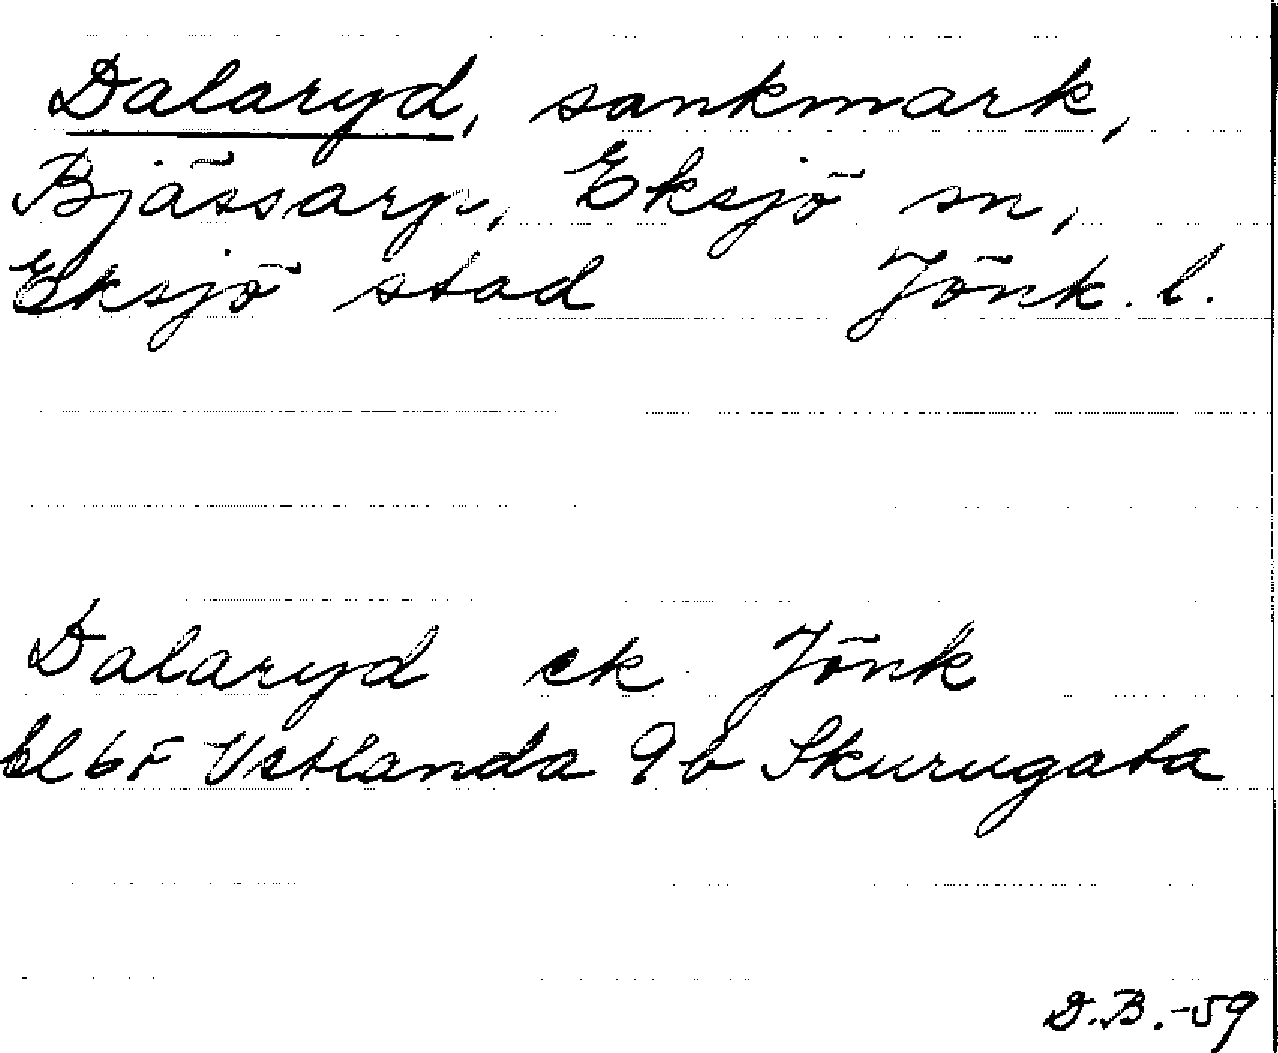 Dalaryd, sankmark,
Bjässarp, Eksjö sn,
Eksjö stad Jönk. l.
Dalaryd ek Jönk
bl 6F Vetlanda 9b Skurugata
D.B.-59